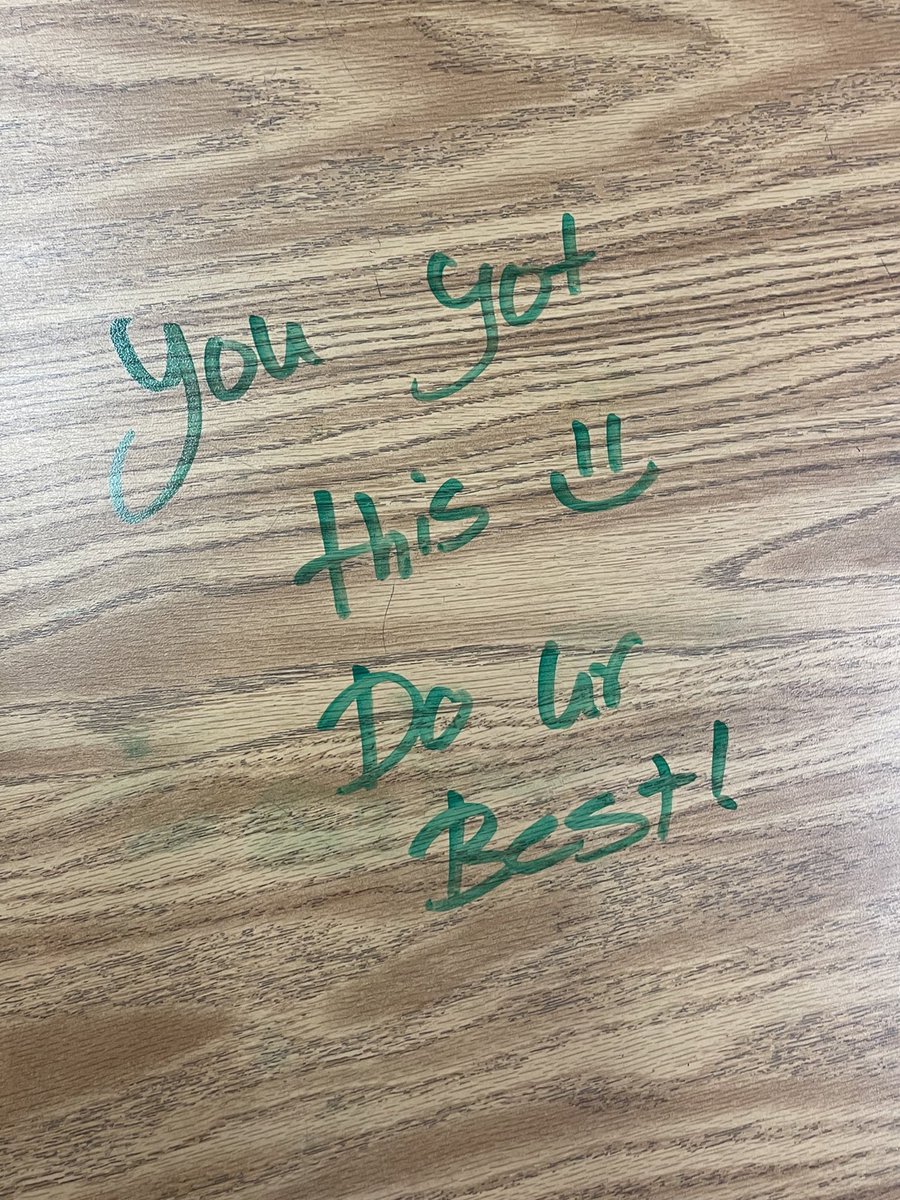 You got
this =)
Do ur
Best!